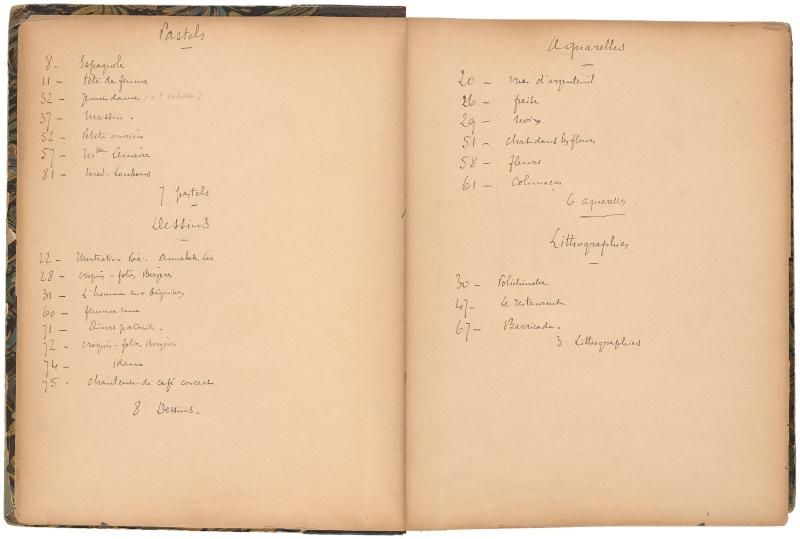 Pastels
8 - Espagnole
11 - tête de femme
32 - Jeune dame
37 - Massin.
52 - Petite ouvrière
57 - Mlle Lemaire
81 - Mad. Loubens
7 pastels
Dessins
22 - Illustration Poë - Annabel Lee
28 - croquis - folies Bergères
31 - L'homme aux béquilles
60 - femme nue
71 - Divers portraits.
72 - croquis - folies Bergères
74 - idem
75 - chanteuse de café concert
8 Dessins.
Aquarelles
20 - vue d'argenteuil
26 - fraise
29 - noix
51 - chat dans les fleurs
58 - fleurs
61 - Colimaçon
6 aquarelles
Lithographies
30 - Polichinelle
47 - Le restaurant
67 - Barricade.
3 Lithographies